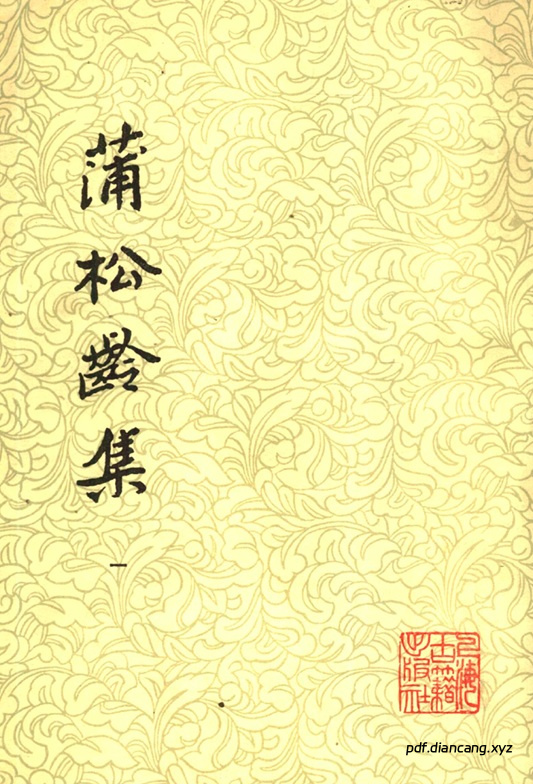 蒲松齡集
一
上海
古籍
出版社
pdf.diancang.xyz